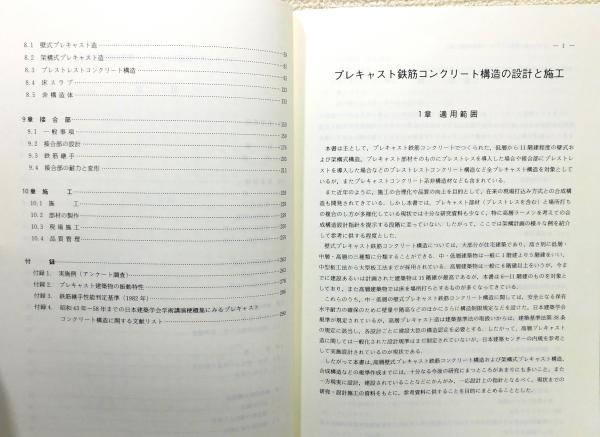 8.1 壁式プレキャスト造
8.2 架構式プレキャスト造
8.3 プレストレストコンクリート構造
8.4 床スラブ
8.5 非構造体
9章 接合部
9.1 一般事項
9.2 接合部の設計
9.3 鉄筋継手
9.4 接合部の耐力と変形
10章 施工
10.1 施工
10.2 部材の製作
10.3 現場施工
10.4 品質管理
付録
付録1. 実施例(アンケート調査)
付録2. プレキャスト建築物の振動特性
付録3. 鉄筋継手性能判定基準(1982年)
付録4. 昭和43年〜58年までの日本建築学会学術講演梗概集にみるプレキャスト
コンクリート構造に関する文献リスト
— 1 —
プレキャスト鉄筋コンクリート構造の設計と施工
1章 適用範囲
本書は主として,プレキャスト鉄筋コンクリートでつくられた,低層から11階建程度の壁式お
よび架構式構造,プレキャスト部材そのものにプレストレスを導入した場合や接合部にプレストレ
ストを導入した場合などのプレストレストコンクリート構造など全プレキャスト構造を対象として
いるが,またプレキャストコンクリート系非構造材なども含まれている.
また近年のように,施工の合理化や品質の向上を目的として,在来の現場打込み方式との合成構
造も開発されてきている.しかし本書では,プレキャスト部材(プレストレスを含む)と場所打ち
の複合のし方が多種化している現状では十分な研究資料も少なく,特に高層ラーメンを考えての合
成構造設計指針を提示する段階に至っていない.したがって,ここでは架構計画の様々な例を紹介
して参考に供する程度とした.
壁式プレキャスト鉄筋コンクリート構造については,大部分が住宅建築であり,高さ別に低層・
中層・高層の三種類に分類することができる.中・低層建築物は一般に1階建より5階建をいい,
中型版工法から大型版工法までが採用されている.高層建築物は一般に6階建以上をいうが,今ま
でに建設あるいは計画された建築物は15階建が最高であるが,本書は6〜11階建のものを対象と
しており,また高層建築物では床を場所打ちとするものが多くなってきている.
これらのうち,中・低層の壁式プレキャスト鉄筋コンクリート構造に関しては,安全となる保有
水平耐力の確保のために壁量や階高などのほかにさらに構造制限規定などを設けた,日本建築学会
規準が規定されているが,高層プレキャスト造は建築基準法の取扱いからは,建築基準法第38条
の規定に該当し,各設計ごとに建設大臣の構造認定を必要とする.したがって,高層プレキャスト
造に関しては一般化された設計規準はまだ制定されていないが,日本建築センターの内規を参考と
して実施設計されているのが現状である.
したがって本書は,高層壁式プレキャスト鉄筋コンクリート構造および架構式プレキャスト構造,
合成構造などの規準作成までには,十分なる今後の研究にまつところがあまりにも多いこと,また
一方現実に設計,建設されていることなどにかんがみ,一応設計上の指針となるべく,現状までの
研究・設計施工の資料をもとに,参考資料に供することを目的にまとめることとした.